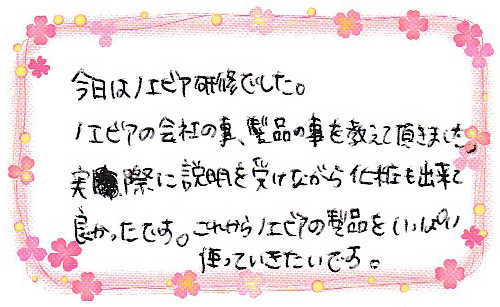 今日はノエビア研修でした。
ノエビアの会社の事、製品の事を教えて頂きました。
実際に説明を受けながら化粧も出来て
良かったです。これからノエビアの製品をいっぱい
使っていきたいです。